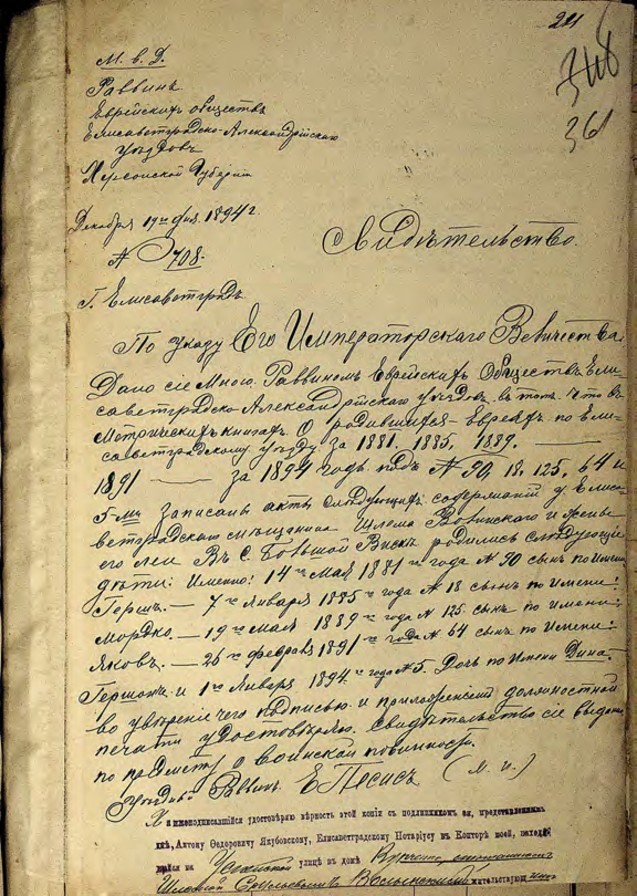 221
348
361
М. в. Д.
Раввинъ
Еврейскихъ обществъ
Елисаветградско-Александрійскаго
уѣздовъ
Херсонской Губерніи
Декабря 19го дня 1894 г.
№ 708.
Г. Елисаветградъ
Свидѣтельство.
По указу Его Императорскаго Величества.
Дано сіе Мною Раввиномъ Еврейскихъ Обществъ Ели-
саветградско-Александрійскаго уѣздовъ въ томъ что въ
Метрическихъ книгахъ о родившихся Евреяхъ по Ели-
саветградскому уѣзду за 1881. 1885. 1889.
1891 — за 1894 годъ подъ № 90, 18. 125. 64 и
5-мъ Записаны акты слѣдующихъ содержаній у Елиса-
ветградскаго мѣщанина Шлема и жены
его Леи Въ с. Большой Виск родились слѣдующіе
дѣти: Именно: 14го Мая 1881го года № 90 сынъ по имени
Гершъ. — 7го Января 1885го года № 18 сынъ по имени:
Мордко. — 19го Мая 1889го года № 125. сынъ по имени:
Яковъ. — 26го февраля 1891го года № 64 сынъ по имени:
Гершонъ и 1го Января 1894. года № 5. Дочь по Имени Дина.
во увѣреніе чего подписью и приложеніемъ должностной
печати удостовѣряю. Свидѣтельство сіе выдано
по предмету о воинской повинности.
Раввинъ Е Песисъ (м. п.)
Я нижеподписавшійся удостовѣряю вѣрность этой копіи съ подлинникомъ ея, представленнымъ
мнѣ, Антону Ѳедоровичу Якубовскому, Елисаветградскому Нотаріусу въ Конторѣ моей, находя-
щейся на Успенской улицѣ въ домѣ
жительствующимъ